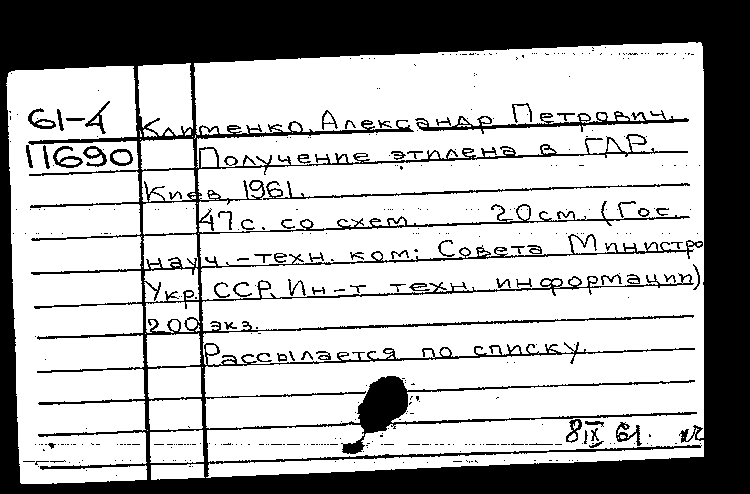 61-4 Клименко, Александр Петрович.
11690 Получение этилена в ГДР.
Киев, 1961.
47с. со схем. 20см. (Гос.
науч.-техн. ком. Совета Министро
Укр ССР. Ин-т техн. информации).
200 экз.
Рассылается по списку.
8 IX 61.